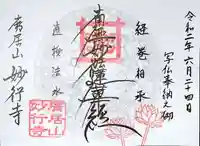 令和二年六月二十四日
写仏奉納之砌
経巻相承
南無妙法蓮華経
直授法水
廣居山妙行寺
廣居山
妙行寺